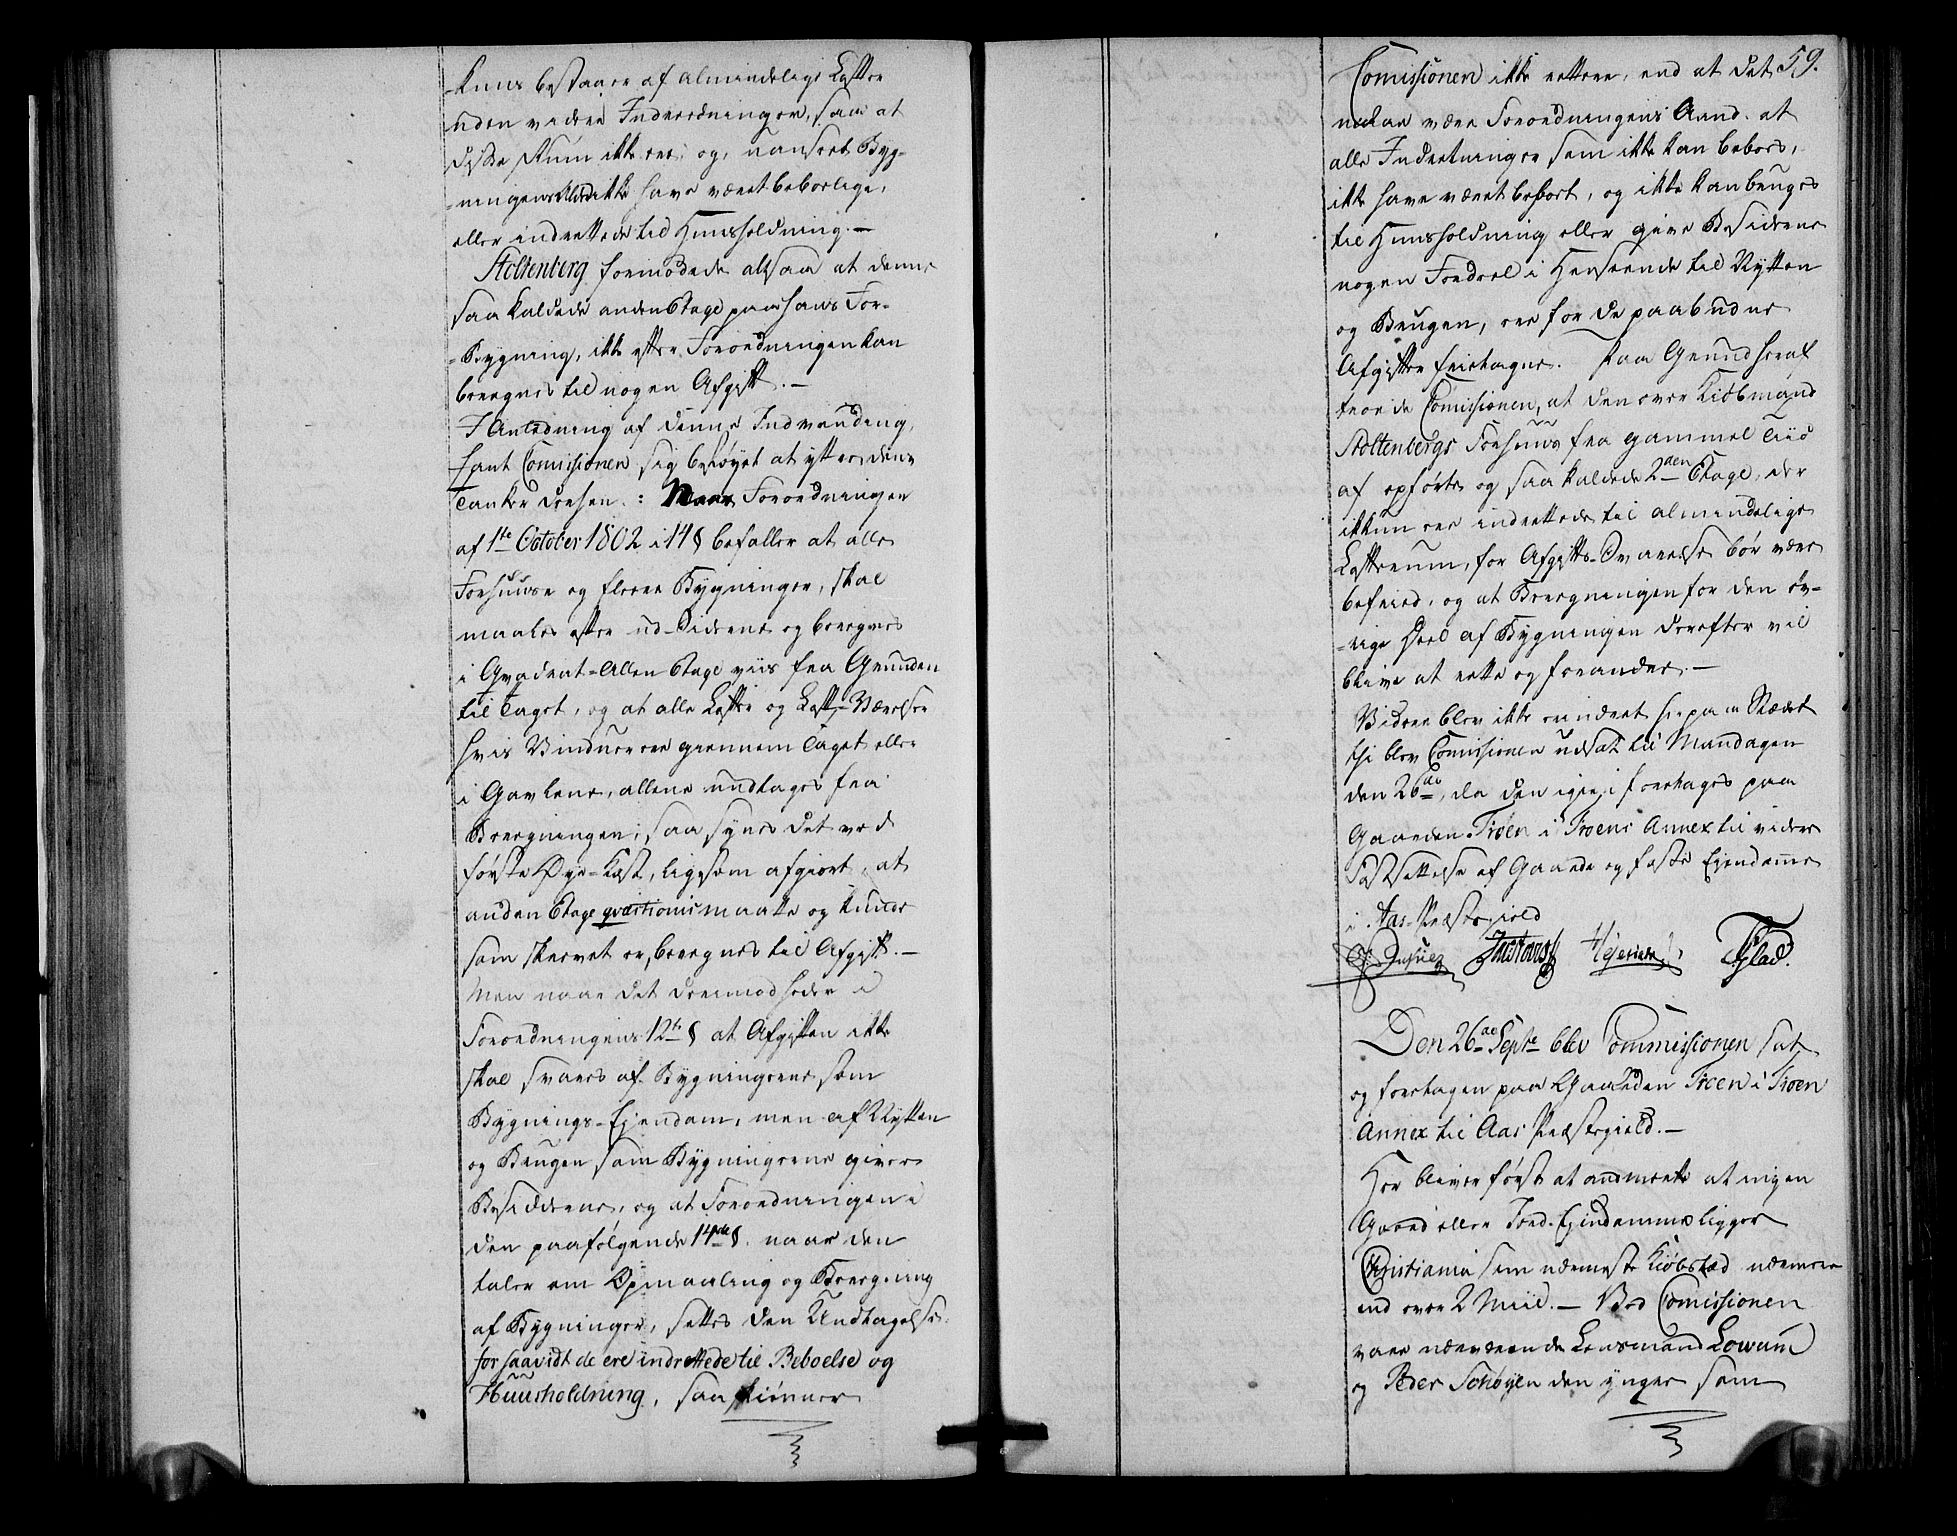 -kuns bestaaer af almindelige Lofter
uden videre Indredninger, saa at
disse Rum ikke ere, og, uanseet Byg-
-ningens Ælde ikke have været beboelige,
eller indrettede til Huusholdning. —
Stoltenberg formodede altsaa at denne
saa kaldede anden Etage paa hans For-
-Bygning, ikke efter Forordningen kan
beregnes til nogen Afgift. —
I Anledning af denne Indvending,
fant Comissionen sig beføyet at yttre sine
Tanker derhen: Naar Forordningen
af 1te October 1802 i 14 § befaller at alle
Forhuuse og fleere Bygninger, skal
maales efter ud-Siderne og beregnes
i Qvadrat-Allen Etage viis fra Grunden
til Taget, og at alle Lofter og Loft-Værelser
hvis Vinduer ere giennem Taget eller
i Gavlene, allene undtages fra
Beregningen; saa synes det ved
første Øye-Kast, ligesom afgiort, at
anden Etage qvæstionis maatte og kunde
som skeevet er, beregnes til Afgift. —
Men naar det derimod heder i
Forordningens 12te § at Afgiften ikke
skal svares af Bygningerne som
Bygnings-Ejendom, men af Nytten
og Brugen som Bygningerne giver
Besidderne, og at Forordningen i
den paafølgende 14de § naar den
taler om Opmaaling og Beregning
af Bygninger, settes den Undtagelse
forsaavidt de ere indrettede til Beboelse og
Huusholdning, saa skiønner
59.
Comissionen ikke rettere, end at det
maae være Forordningens Aand at
alle Indretninger som ikke kan beboes,
ikke have været beboet, og ikke kan bruges
til Huusholdning eller give Besidderne
nogen Fordeel i Henseende til Nytten
og Brugen, ere for de paabudne
Afgifter friatagne. Paa Grund heraf
troede Comissionen, at den over Kiøbmand
Stoltenbergs Forhuus fra gammel Tiid
af opførte og saa kaldede 2den Etage, der
ikkun ere indrettede til almindelige
Lofterum, for Afgifts-Svarelse bør være
befried, og at Beregningen for den øv-
-rige Deel af Bygningen derefter vil
blive at rette og forandre. —
Videre blev ikke erindret her paa Stædet
thi blev Comissionen udsat til Mandagen
den 26de, da den igien foretages paa
Gaarden Troen i Kroens Annex til videre
Fastsettelse af Gaarde og faste Ejendomme
i Aas Præstegield
Den 26de Septr blev Commissionen sat
og foretagen paa Gaarden Troen i Kroen
Annex til Aas Præstegield. —
Her bliver først at anmerke at ingen
Gaard eller Jord-Ejendomme ligger
Christiania som nærmeste Kiøbstæd nærmere
end over 2 Miil. — Ved Comissionen
vare nærværende Lensmand Lowum
og Peder Schøyen den yngre som